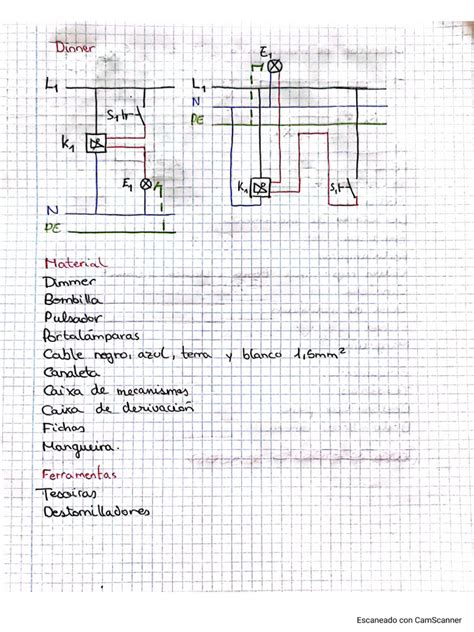 Dinner
E1
L1
L1
S1
N
PE
K1
E1
K1
S1
N
PE
Material
Dimmer
Bombilla
Pulsador
Portalámparas
Cable negro, azul, terra y blanco 1,5mm²
Canaleta
Caixa de mecanismos
Caixa de derivación
Fichas
Mangueira.
Ferramentas
Tesoiras
Destornilladores
Escaneado con CamScanner